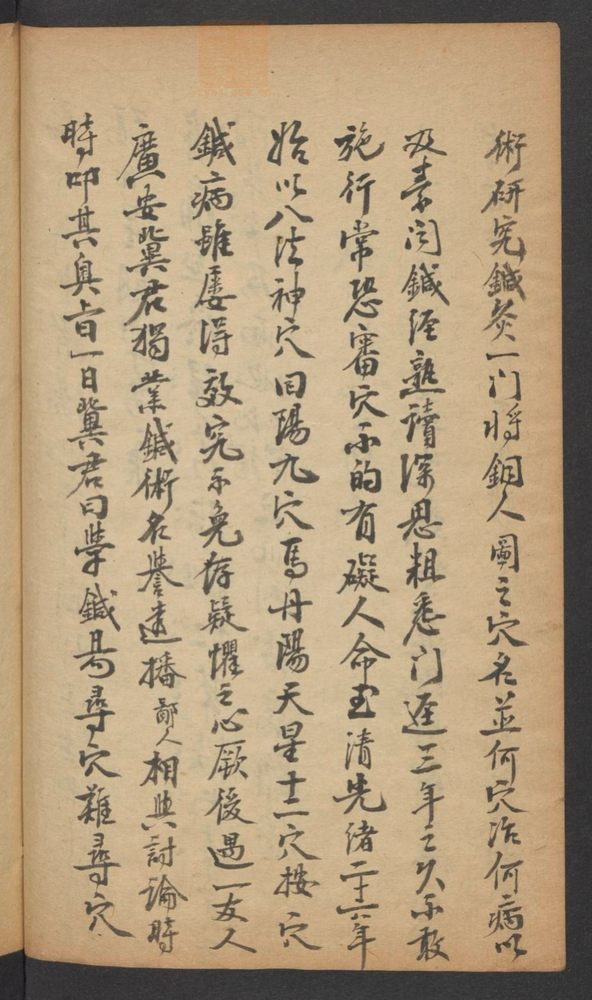 術研究鍼灸一门將銅人圖之穴名並何穴治何病以
及素问鍼经熟讀深思粗悉门逕三年之久不敢
施行常恐審穴不的有礙人命至清光绪二十六年
始以八法神穴回陽九穴馬丹陽天星十二穴按穴
鍼病雖屡得效究不免存疑懼之心厥後遇一友人
廣安冀君獨業鍼術名譽遠播鄙人相與討論時
時叩其奥旨一日冀君曰學鍼易尋穴難尋穴